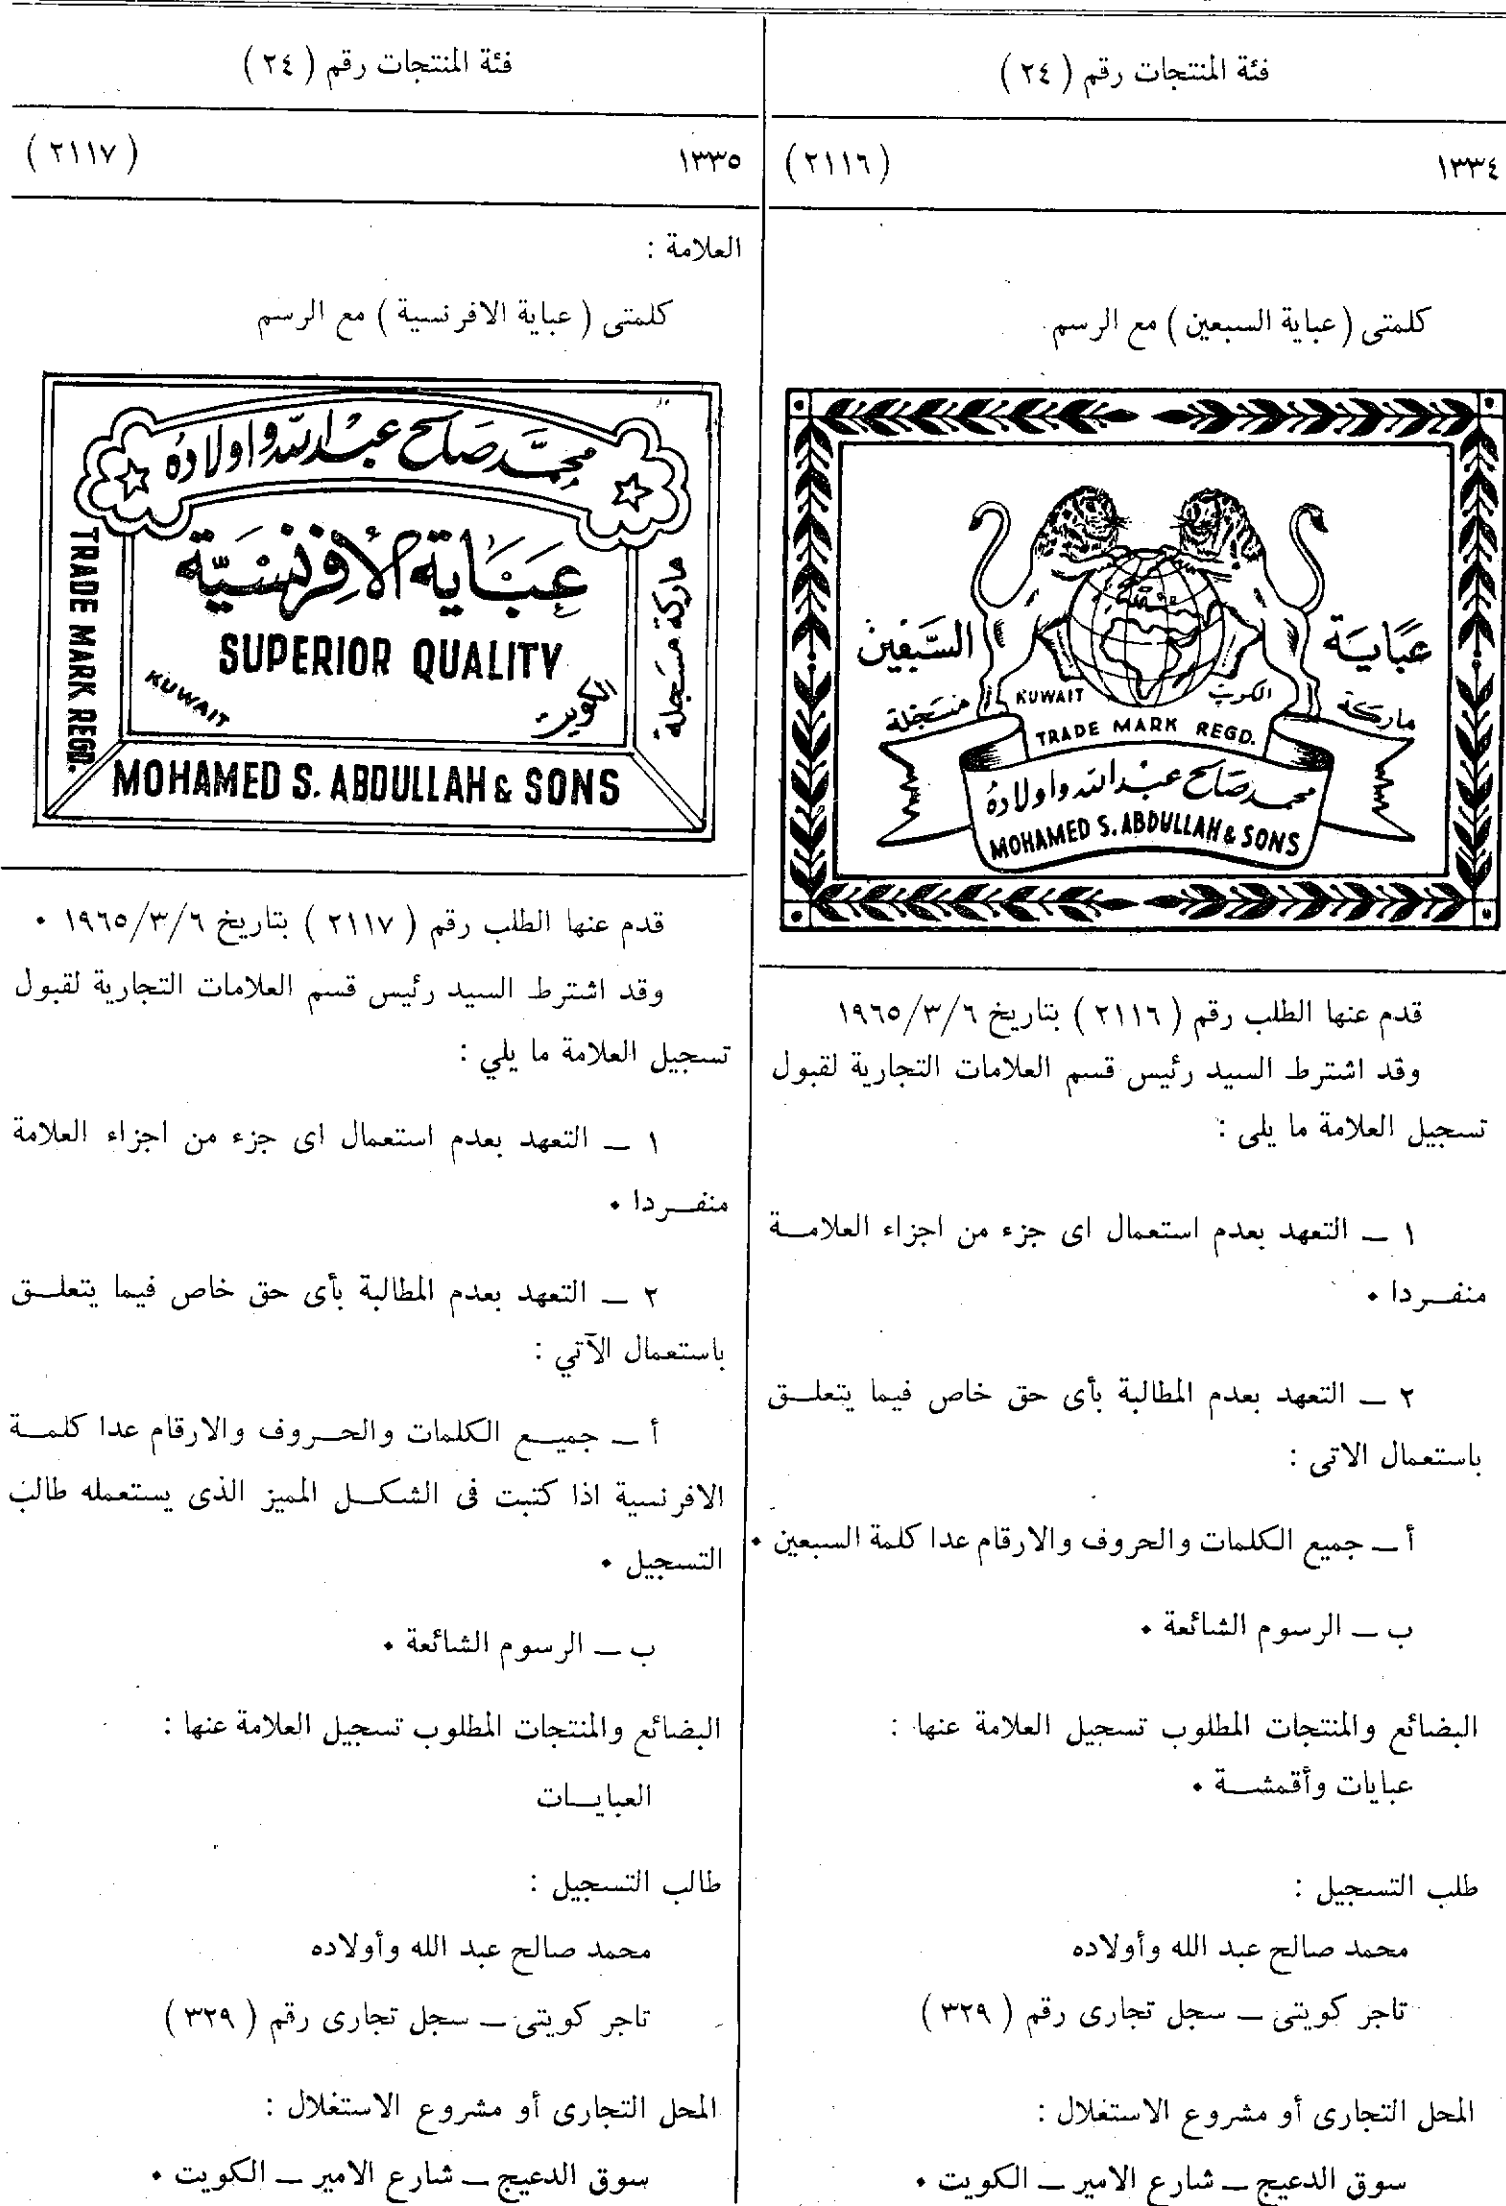 فئة المنتجات رقم ( ٢٤ )
١٣٣٤ ( ٢١١٦ )
كلمتى ( عباية السبعين ) مع الرسم
عَبَايَة السَّبعَين
KUWAIT الكويت
ماركة مسَجلة
TRADE MARK REGD.
محمد صَالح عبد الله واولاده
MOHAMED S. ABDULLAH & SONS
قدم عنها الطلب رقم ( ٢١١٦ ) بتاريخ ١٩٦٥/٣/٦
وقد اشترط السيد رئيس قسم العلامات التجارية لقبول
تسجيل العلامة ما يلى :
١ ــ التعهد بعدم استعمال اى جزء من اجزاء العلامــة
منفــردا ٠
٢ ــ التعهد بعدم المطالبة بأى حق خاص فيما يتعلــق
باستعمال الاتى :
أ ــ جميع الكلمات والحروف والارقام عدا كلمة السبعين ٠
ب ــ الرسوم الشائعة ٠
البضائع والمنتجات المطلوب تسجيل العلامة عنها :
عبايات وأقمشــة ٠
طلب التسجيل :
محمد صالح عبد الله وأولاده
تاجر كويتى ــ سجل تجارى رقم ( ٣٢٩ )
المحل التجارى أو مشروع الاستغلال :
سوق الدعيج ــ شارع الامير ــ الكويت ٠
فئة المنتجات رقم ( ٢٤ )
١٣٣٥ ( ٢١١٧ )
العلامة :
كلمتى ( عباية الافرنسية ) مع الرسم
محمَّد صَالح عبْد الله واولادهُ
عبَاية الافرنسيّة
SUPERIOR QUALITY
KUWAIT الكويت
ماركة مسَجلة
TRADE MARK REGD.
MOHAMED S. ABDULLAH & SONS
قدم عنها الطلب رقم ( ٢١١٧ ) بتاريخ ١٩٦٥/٣/٦ ٠
وقد اشترط السيد رئيس قسم العلامات التجارية لقبول
تسجيل العلامة ما يلي :
١ ــ التعهد بعدم استعمال اى جزء من اجزاء العلامة
منفــردا ٠
٢ ــ التعهد بعدم المطالبة بأى حق خاص فيما يتعلــق
باستعمال الآتي :
أ ــ جميــع الكلمات والحــروف والارقام عدا كلمــة
الافرنسية اذا كتبت فى الشكــل المميز الذى يستعمله طالب
التسجيل ٠
ب ــ الرسوم الشائعة ٠
البضائع والمنتجات المطلوب تسجيل العلامة عنها :
العبايــات
طالب التسجيل :
محمد صالح عبد الله وأولاده
تاجر كويتى ــ سجل تجارى رقم ( ٣٢٩ )
المحل التجارى أو مشروع الاستغلال :
سوق الدعيج ــ شارع الامير ــ الكويت ٠